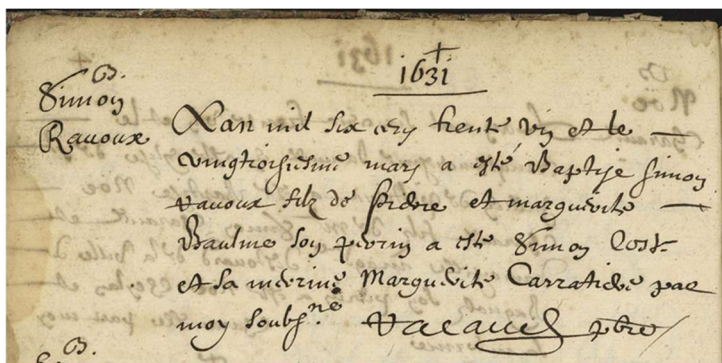 1631
B.
Simon
Ravoux
L'an mil six cens trente un et le
vingtroisiesme mars a esté Baptise simon
ravoux filz de pierre et marguerite
Baulme son perrin a este Simon Cost
et sa merrine Marguerite Carratiere par
moy soubs.ne pbre
B.